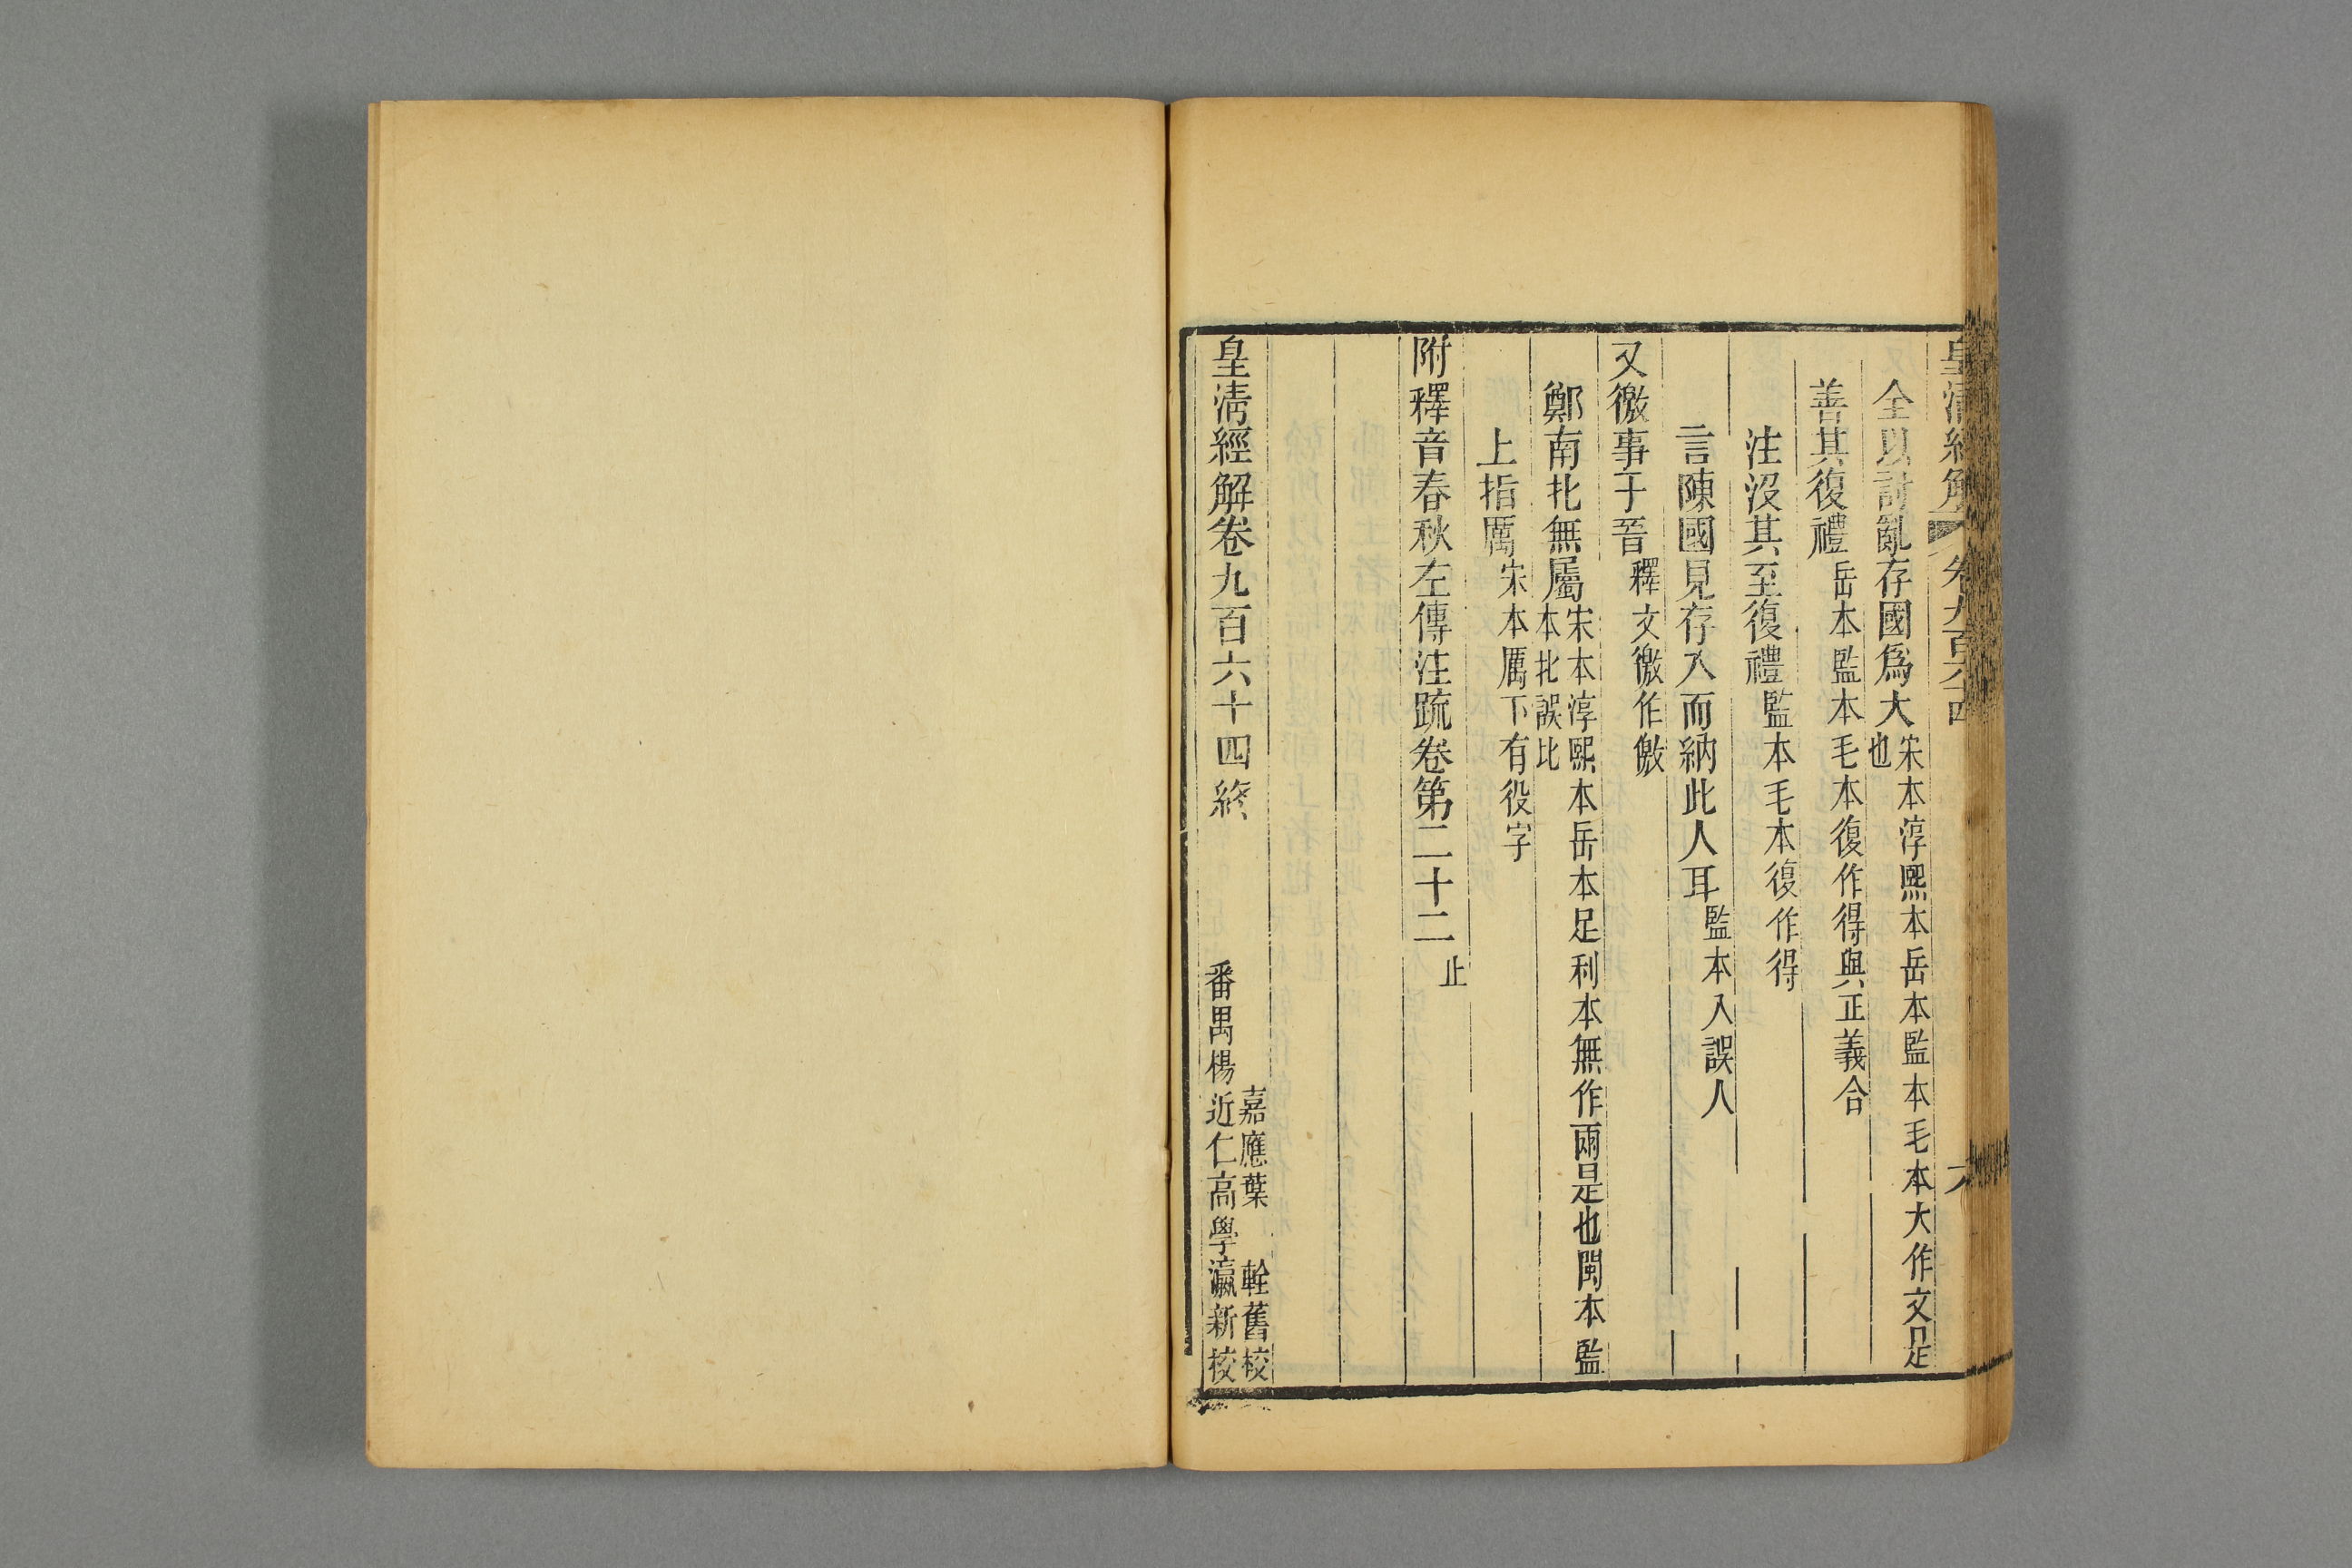 皇清經解 卷九百六十四 六
全以討亂存國爲大宋本淳熙本岳本監本毛本大作文是也
善其復禮岳本監本毛本復作得與正義合
注沒其至復禮監本毛本復作得
言陳國見存入而納此人耳監本入誤人
又徼事于晉釋文徼作儌
鄭南北無屬宋本淳熙本岳本足利本無作兩是也閩本監本北誤比
上指厲宋本厲下有役字
附釋音春秋左傳注疏卷第二十二止
皇清經解卷九百六十四終
嘉應葉 輇舊校
番禺楊近仁高學瀛新校